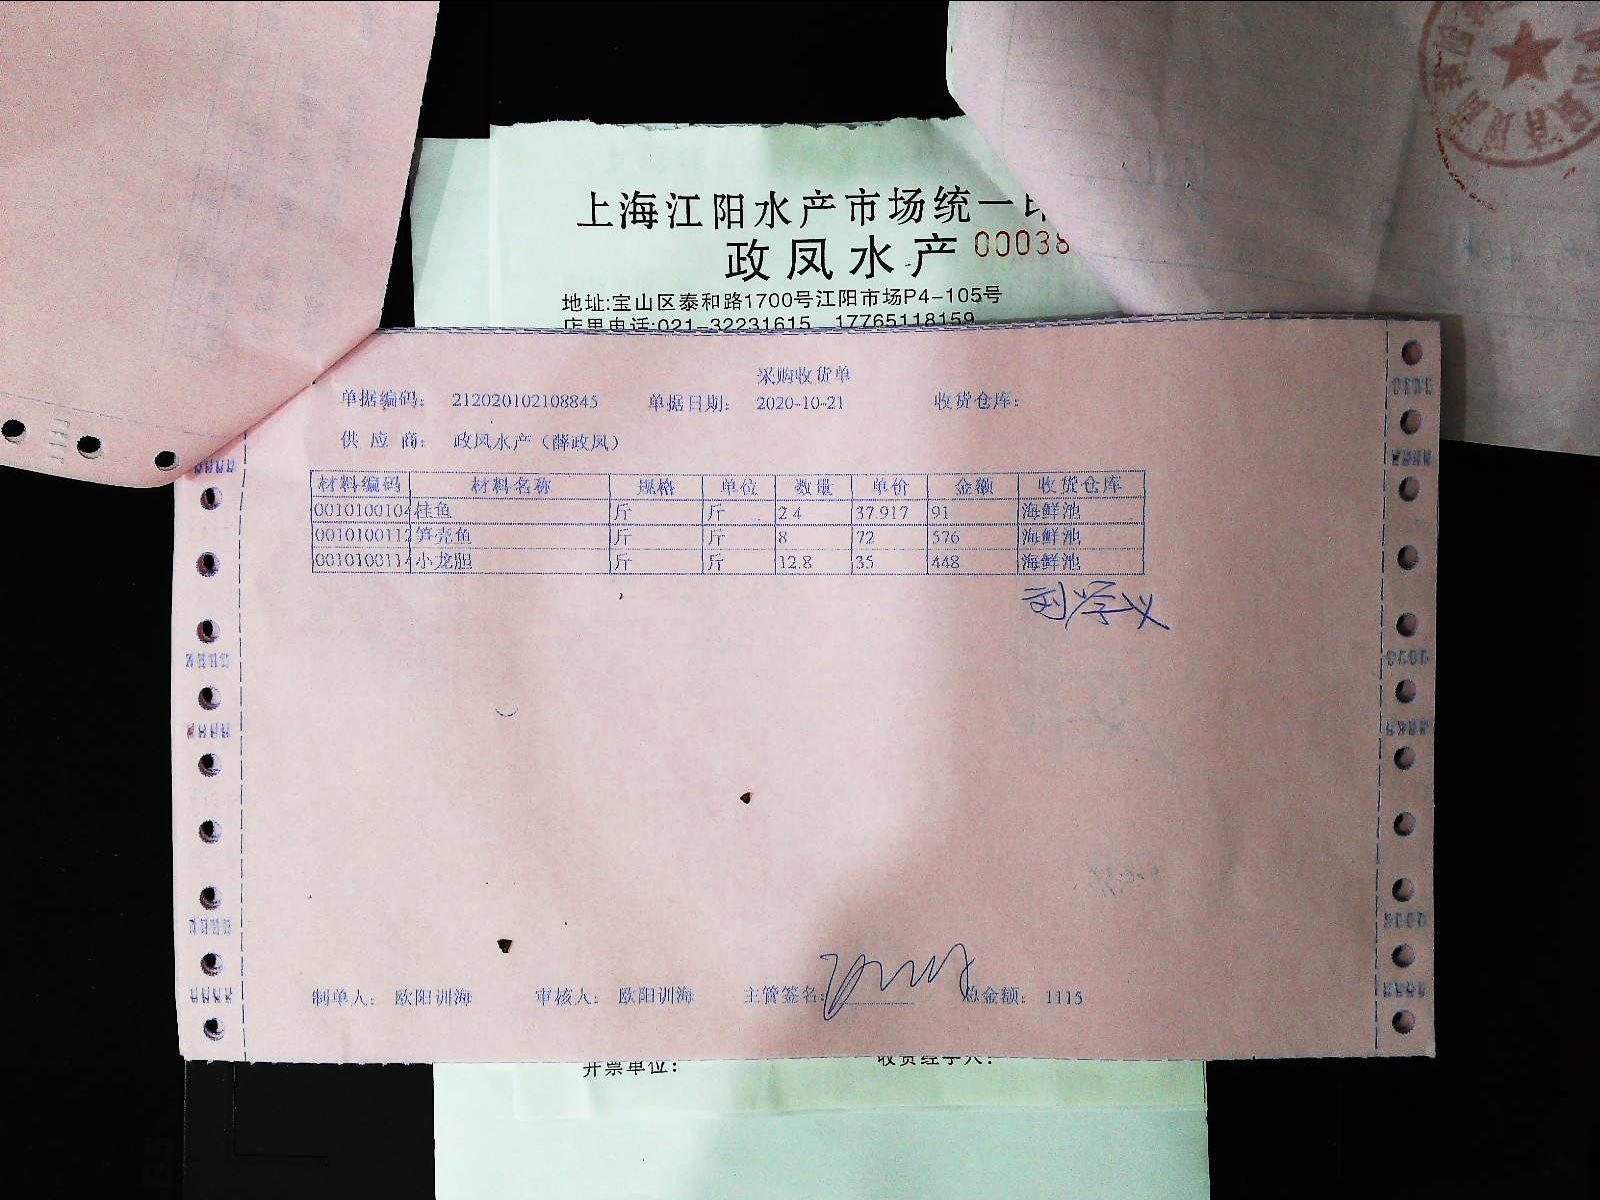 上海江阳水产市场统一
政凤水产 00038
地址:宝山区泰和路1700号江阳市场P4-105号
店里电话:021-32231615 17765118159
采购收货单
单据编码: 212020102108845 单据日期: 2020-10-21 收货仓库:
供 应 商: 政凤水产(薛政凤)
材料编码 材料名称 规格 单位 数量 单价 金额 收货仓库
0010100104 桂鱼 斤 斤 2.4 37.917 91 海鲜池
0010100112 笋壳鱼 斤 斤 8 72 576 海鲜池
0010100114 小龙胆 斤 斤 12.8 35 448 海鲜池
制单人: 欧阳训海 审核人: 欧阳训海 主管签名: 总金额: 1115
开票单位: 收货经手人: